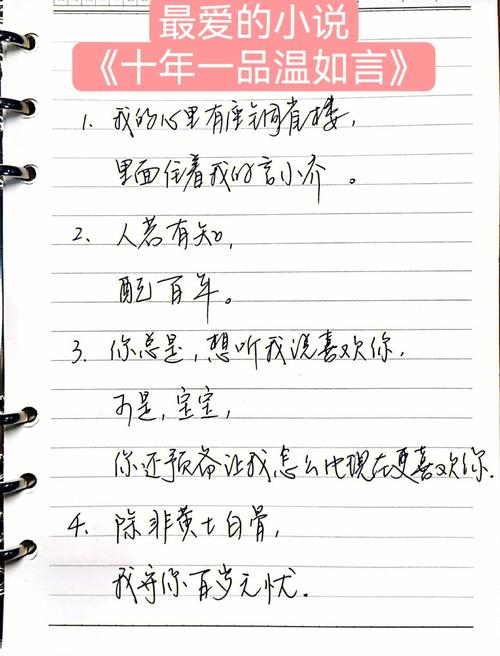 最爱的小说
《十年一品温如言》
1、我的心里有座铜雀楼,
里面住着我的言小乔。
2、人若有知,
配百年。
3、你总是,想听我说喜欢你,
可是,宝宝,
你还预备让我怎么比现在更喜欢你.
4、除非黄土白骨,
我守你百岁无忧.